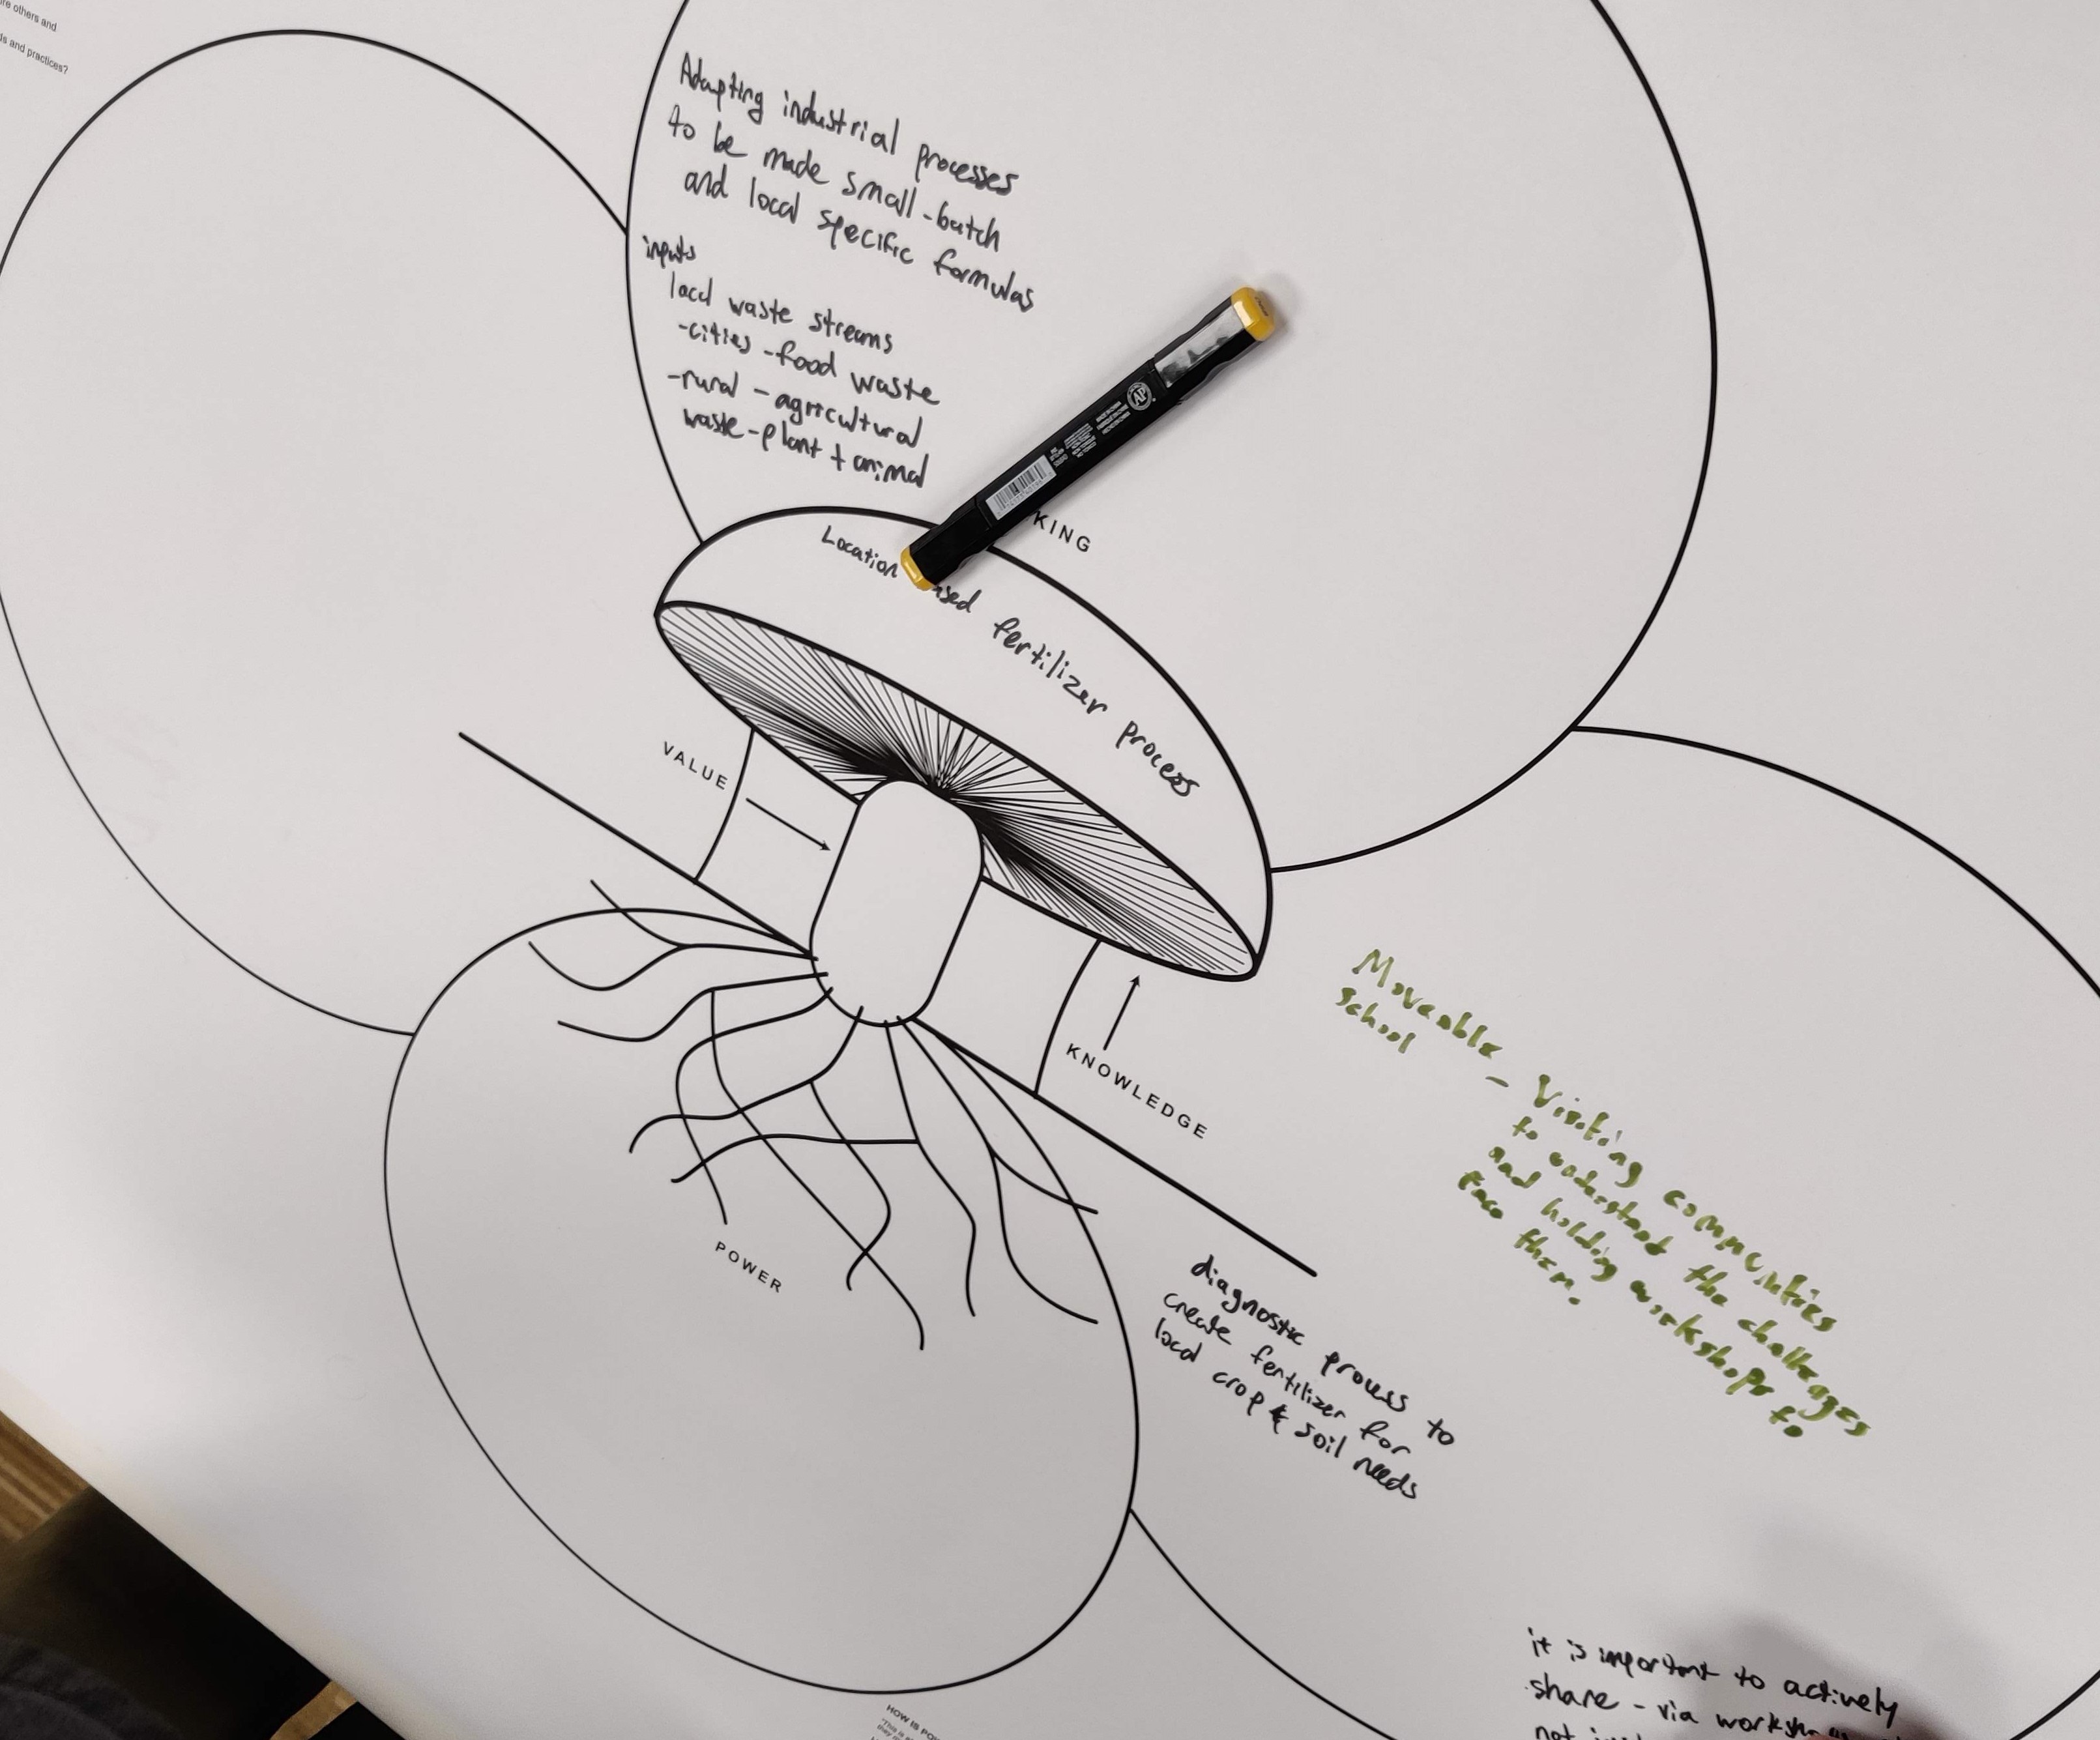 re others and
ds and practices?
Adapting industrial processes
to be made small-batch
and local specific formulas
inputs
local waste streams
-cities -food waste
-rural - agricultural
waste-plant + animal
KING
AP
Location ased fertilizer process
VALUE
KNOWLEDGE
POWER
Moveable - Visiting communities
school
to understand the challenges
and holding workshops to
face them.
diagnostic process to
create fertilizer for
local crop & soil needs
it is important to actively
share - via worksho
not
HOW IS PO
"This is a